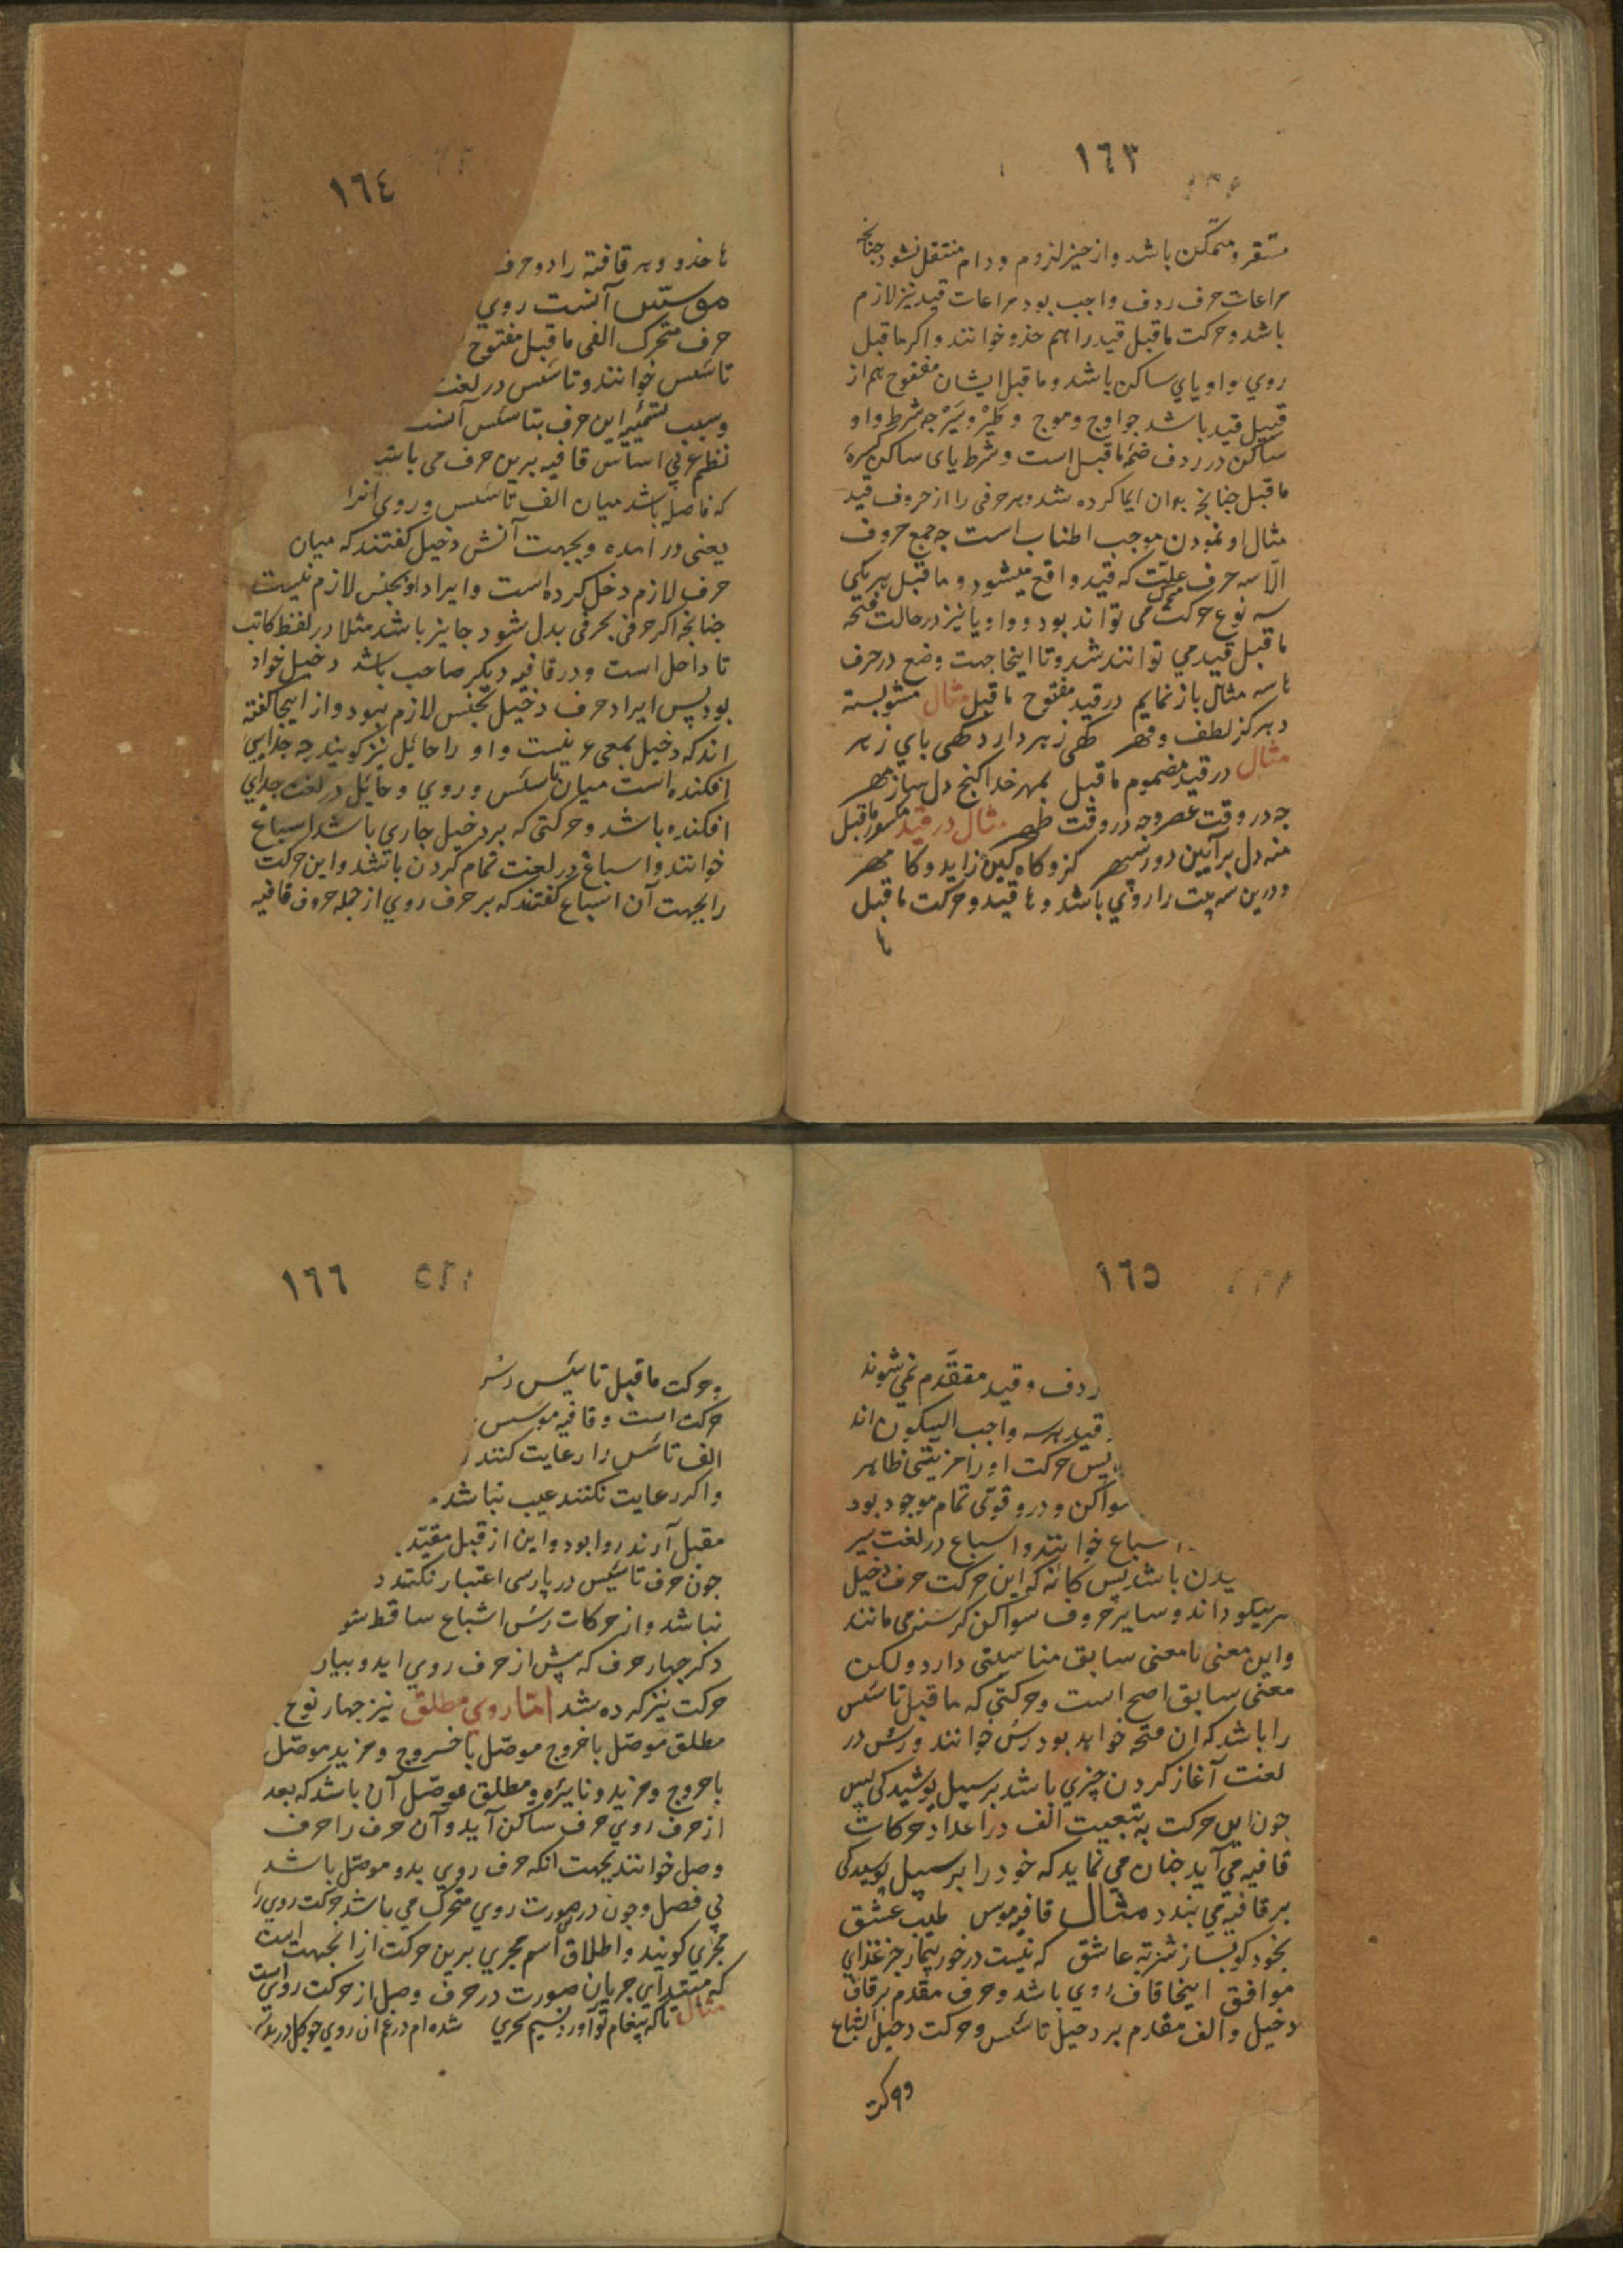 ١٦٣
مستقر و متمکن باشد و از حیز لزوم و دام منتقل نشود چنانچه
مراعات حرف ردف واجب بود مراعات قید نیز لازم
باشد و حرکت ماقبل قید را هم حذو خوانند و اکر ماقبل
روي واو یاي ساکن باشد و ماقبل ایشان مفتوح هم از
قبیل قید باشد چو اوج و موج و طَیْر و سَیْر چه شرط واو
ساکن در ردف ضمّه ماقبل است و شرط یای ساکن کسرهٔ
ماقبل چنانچه بدان ایما کرده شد و هر حرفی را از حروف قید
مثال او نمودن موجب اطناب است چه جمع حروف
الّا سه حرف علّت که قید واقع میشود و ماقبل هر یکی
سه نوع حرکت می تواند بود و واو یا نیز در حالت فتحه
ماقبل قید می توانند شد و تا اینجا جهت وضع در حرف
ها سه مثال باز نمایم در قید مفتوح ماقبل مثال مشو بسته
دهر کز لطف و قهر کهی زهر دارد کهی پاي زهر
مثال در قید مضموم ماقبل بمهر خدا کنج دل ساز مهر
چه در وقت عصر و چه در وقت ظهر مثال در قید مکسور ماقبل
منه دل بر آیین دور سپهر کزو کاه کین زاید و کاه مهر
و درین سه بیت را روي باشد و ها قید و حرکت ماقبل
ها
١٦٤
ها حذو و هر قافیه را دو حرف
موسّس آنست روي
حرف متحرک الفی ماقبل مفتوح
تاسّیس خوانند و تاسّیس در لغت
و سبب تسمیّه این حرف بتاسّیس آنست
نظم عربی اساس قافیه برین حرف می باشد
که فاصله باشد میان الف تاسّیس و روی انرا
یعنی در امده و بجهت آنش دخیل کفتند که میان
حرف لازم دخل کرده است و ایراد او بجنس لازم نیست
چنانچه اکر حرفی بحرفی بدل شود جایز باشد مثلا در لفظ کاتب
تا داخل است و در قافیه دیکر صاحب باشد دخیل خواد
بود پس ایراد حرف دخیل بجنس لازم نبود و از اینجا کفته
اند که دخیل بمعیء نیست و او را حائل نیز کویند چه جدایی
افکنده است میان تاسّیس و روي و حائل در لغت جدای
افکنده باشد و حرکتی که بر دخیل جاری باشد اسباغ
خوانند و اسباغ در لغت تمام کردن باشد و این حرکت
را بجهت آن اسباع کفتند که بر حرف روي از جمله حروف قافیه
١٦٥
ردف و قید مققدّم نمی شوند
قید هر سه واجب السکون اند
پس حرکت او را مزیتی ظاهر
سواکن و در و قوّتی تمام موجود بود
اسباع خوانند و اسباع در لغت سیر
یدن باشد پس کانّه که این حرکت حرف دخیل
سر میکوداند و سایر حروف سواکن کرسنه می مانند
و این معنی با معنی سابق مناسبتی دارد و لکن
معنی سابق اصح است و حرکتی که ماقبل تاسّیس
را باشد که ان فتحه خواهد بود رس خوانند و رس در
لغت آغاز کردن چیزي باشد بر سبیل پوشیدکی پس
چون این حرکت به تبعیت الف در اعداد حرکات
قافیه می آید چنان می نماید که خود را بر سبیل پوشیدکی
بر قافیه می بندد مثال قافیه موسس طبیب عشق
بخود کو بساز شربه عاشق که نیست در خور بیمار جز غذاي
موافق اینجا قاف روي باشد و حرف مقدم بر قاف
دخیل و الف مقدم بر دخیل تاسّیس و حرکت دخیل اشباع
و حرکت
١٦٦
و حرکت ماقبل تاسّیس رس
حرکت است و قافیه موسس
الف تاسّس را رعایت کنند
و اکر رعایت نکنند عیب نباشد
مقبل آرند روا بود و این از قبل مقیّد
چون حرف تاسّیس در پارسی اعتبار نکنند
نباشد و از حرکات رس اشباع ساقط شو
ذکر چهار حرف که پیش از حرف روي اید و بیان
حرکت نیز کرده شد امّا روي مطلق نیز چهار نوع
مطلق موصّل با خروج موصّل با خروج و مزید موصّل
با خروج و مزید و نایره و مطلق موصّل آن باشد که بعد
از حرف روي حرف ساکن آید و آن حرف را حرف
وصل خوانند بجهت انکه حرف روي بدو موصّل باشد
بی فصل و چون در صورت روي متحرک می باشد حرکت روي را
مجري کویند و اطلاق اسم مجري برین حرکت از انجهت است
که مبتداي جریان صورت در حرف وصل از حرکت روي است
مثال تا که پیغام تو آورد نسیم سحري شده ام در غم ان روي چو کل